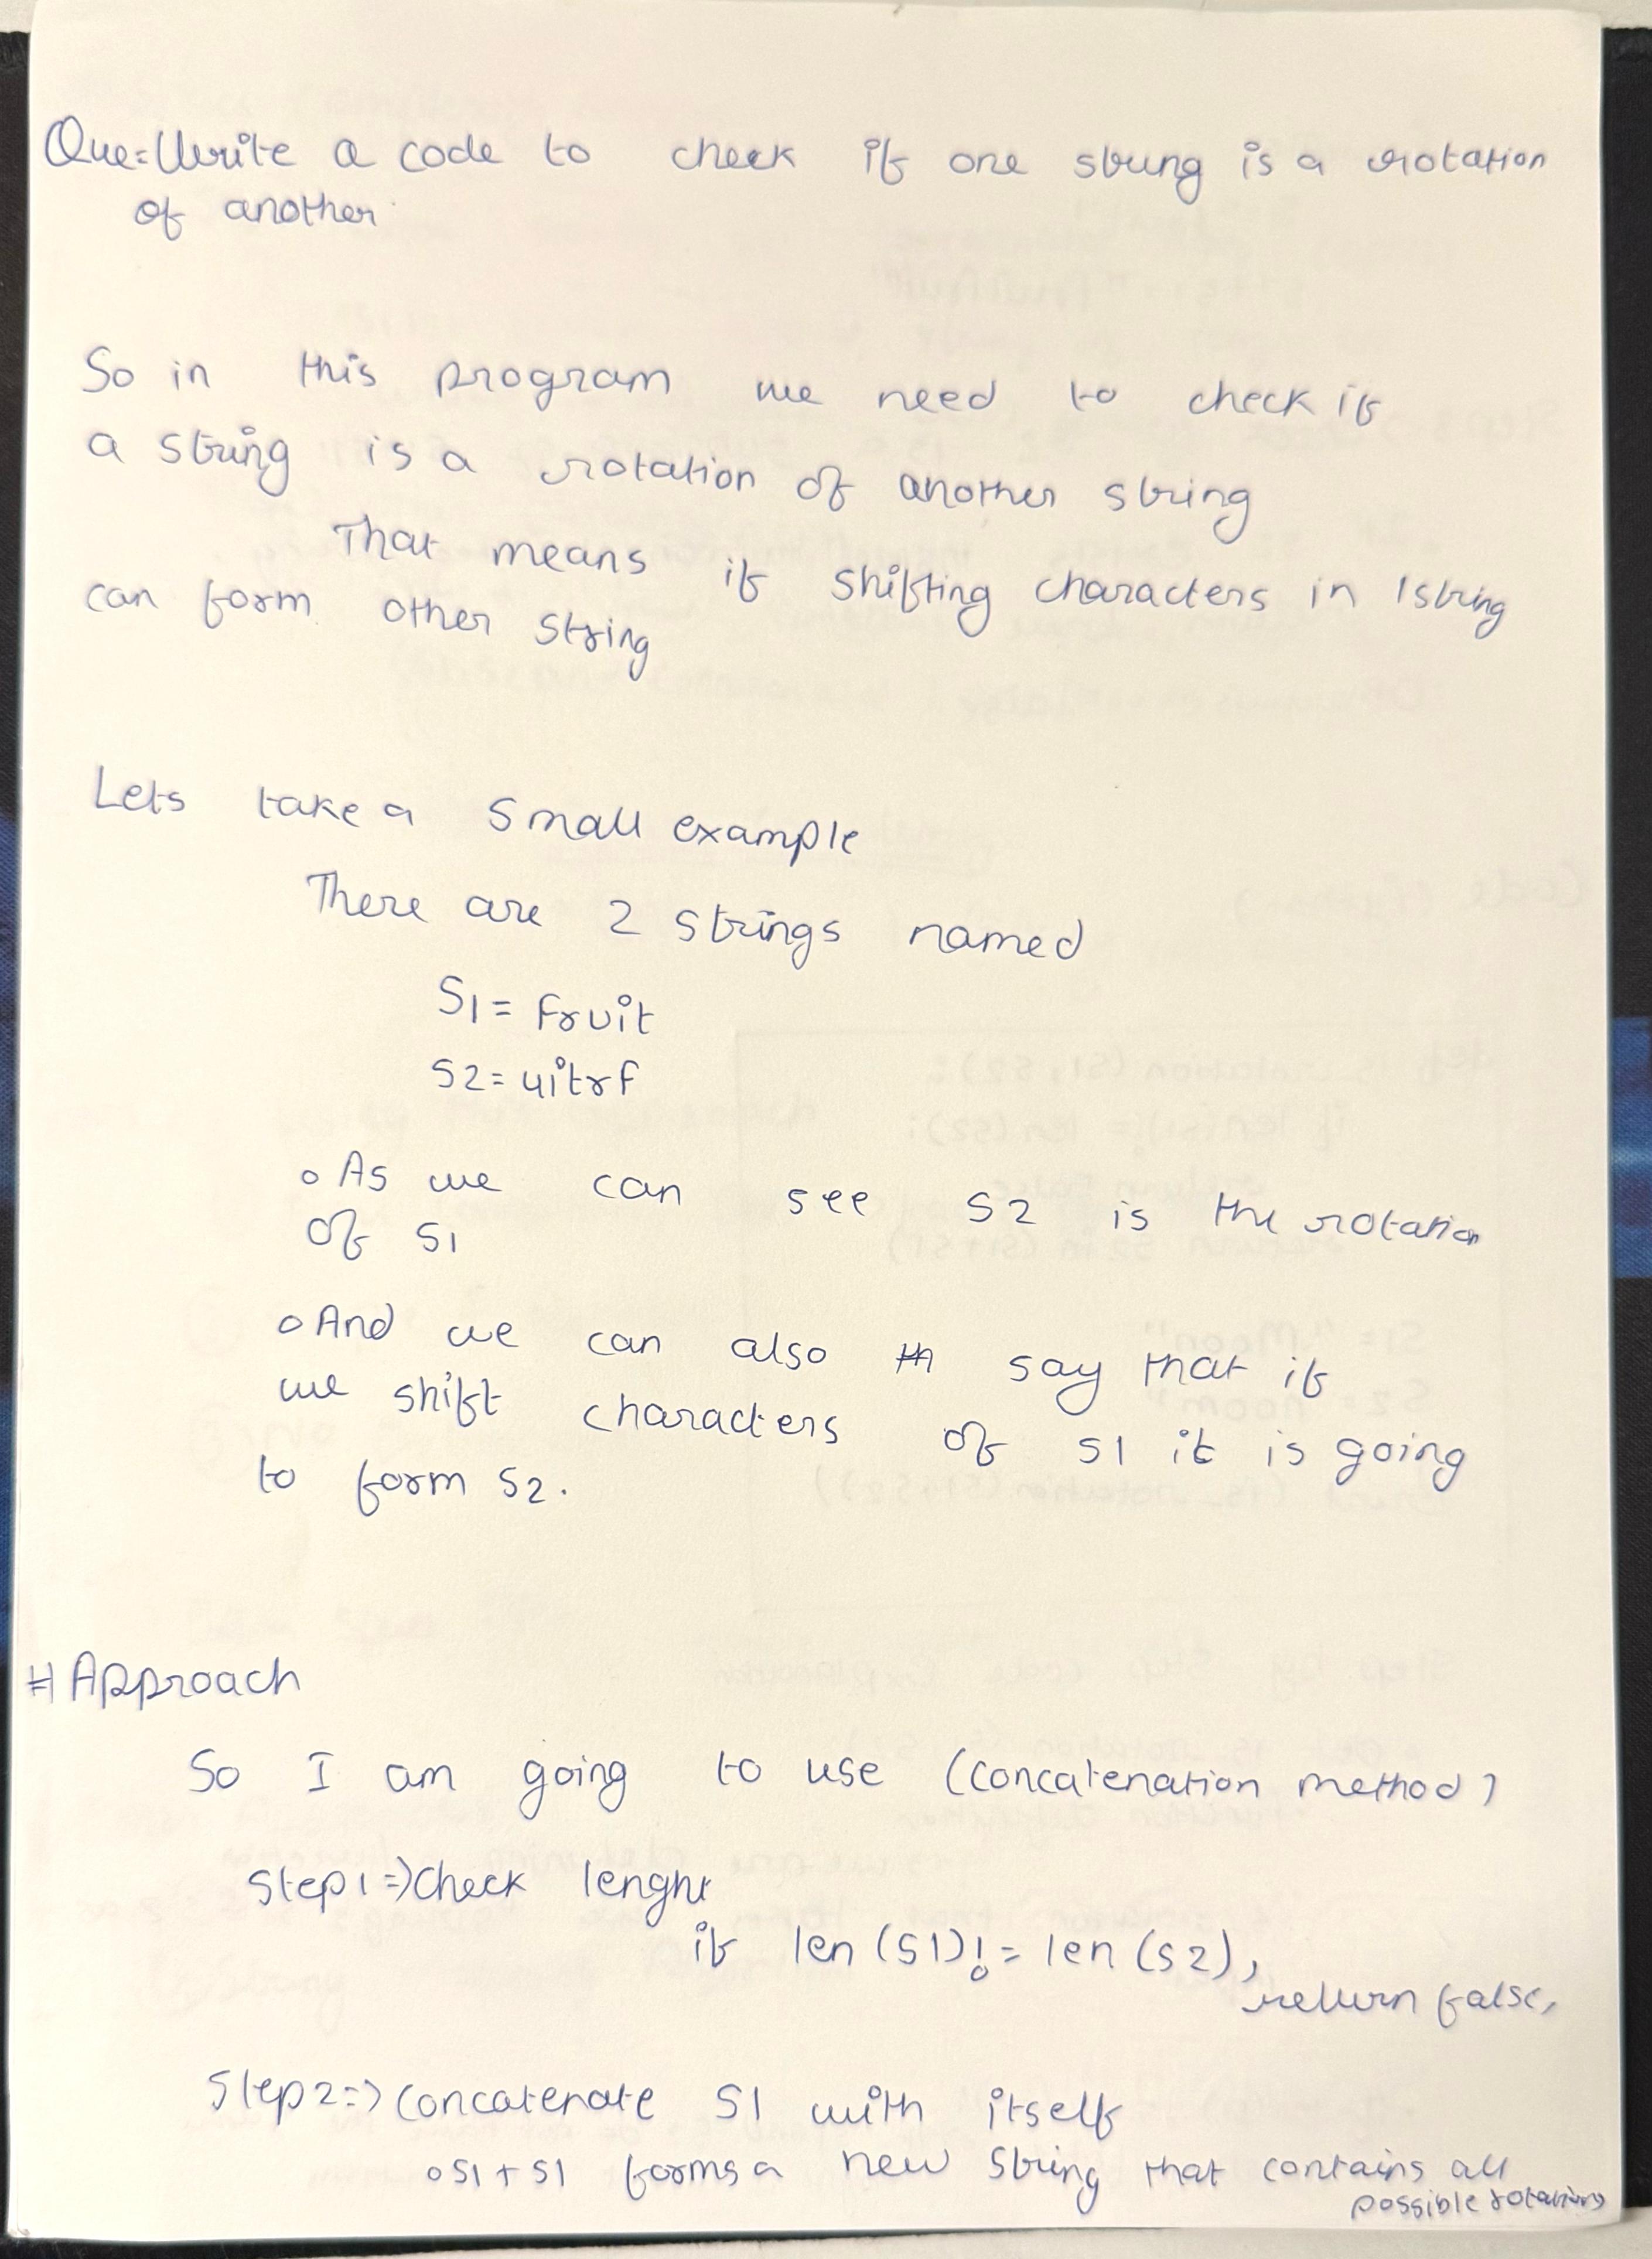 Que=Write a code to check if one string is a rotation
of another
So in this program we need to check if
a string is a rotation of another string
That means if shifting characters in 1string
can form other string
Lets take a small example
There are 2 strings named
S1= fruit
S2= uitrf
o As we can see S2 is the rotation
of S1
o And we can also th say that if
we shift characters of S1 it is going
to form S2.
# Approach
So I am going to use (concatenation method)
Step1=>Check lenght
if len (S1)!= len (S2),
return false,
Step2=> Concatenate S1 with itself
o S1 + S1 forms a new string that contains all
possible rotations